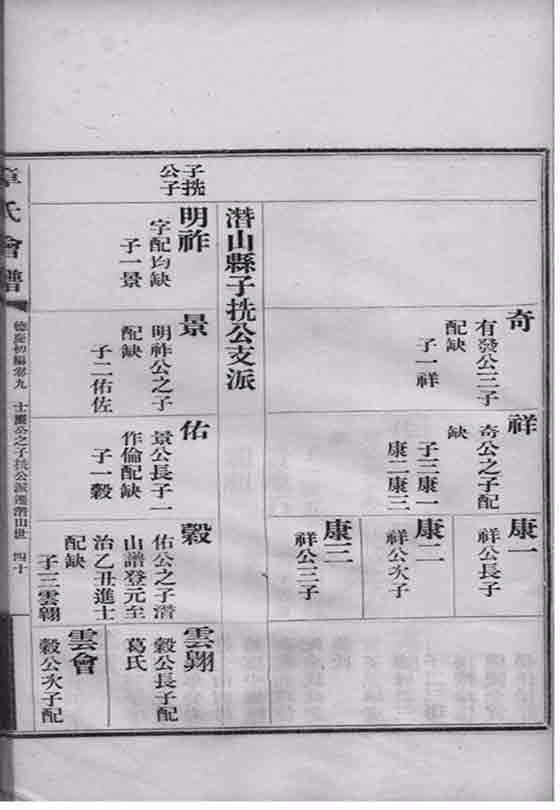 奇
有發公三子
配缺
子一祥
祥
奇公之子配
缺
子三康一
康二康三
康一
祥公長子
康二
祥公次子
康三
祥公三子
潛山縣子㧥公支派
子㧥
公子
明祚
字配均缺
子一景
景
明祚公之子
配缺
子二佑佐
佑
景公長子一
作倫配缺
子一穀
穀
佑公之子潛
山譜登元至
治乙丑進士
配缺
子三雲翱
雲翱
穀公長子配
葛氏
雲會
穀公次子配
氏會譜
四十